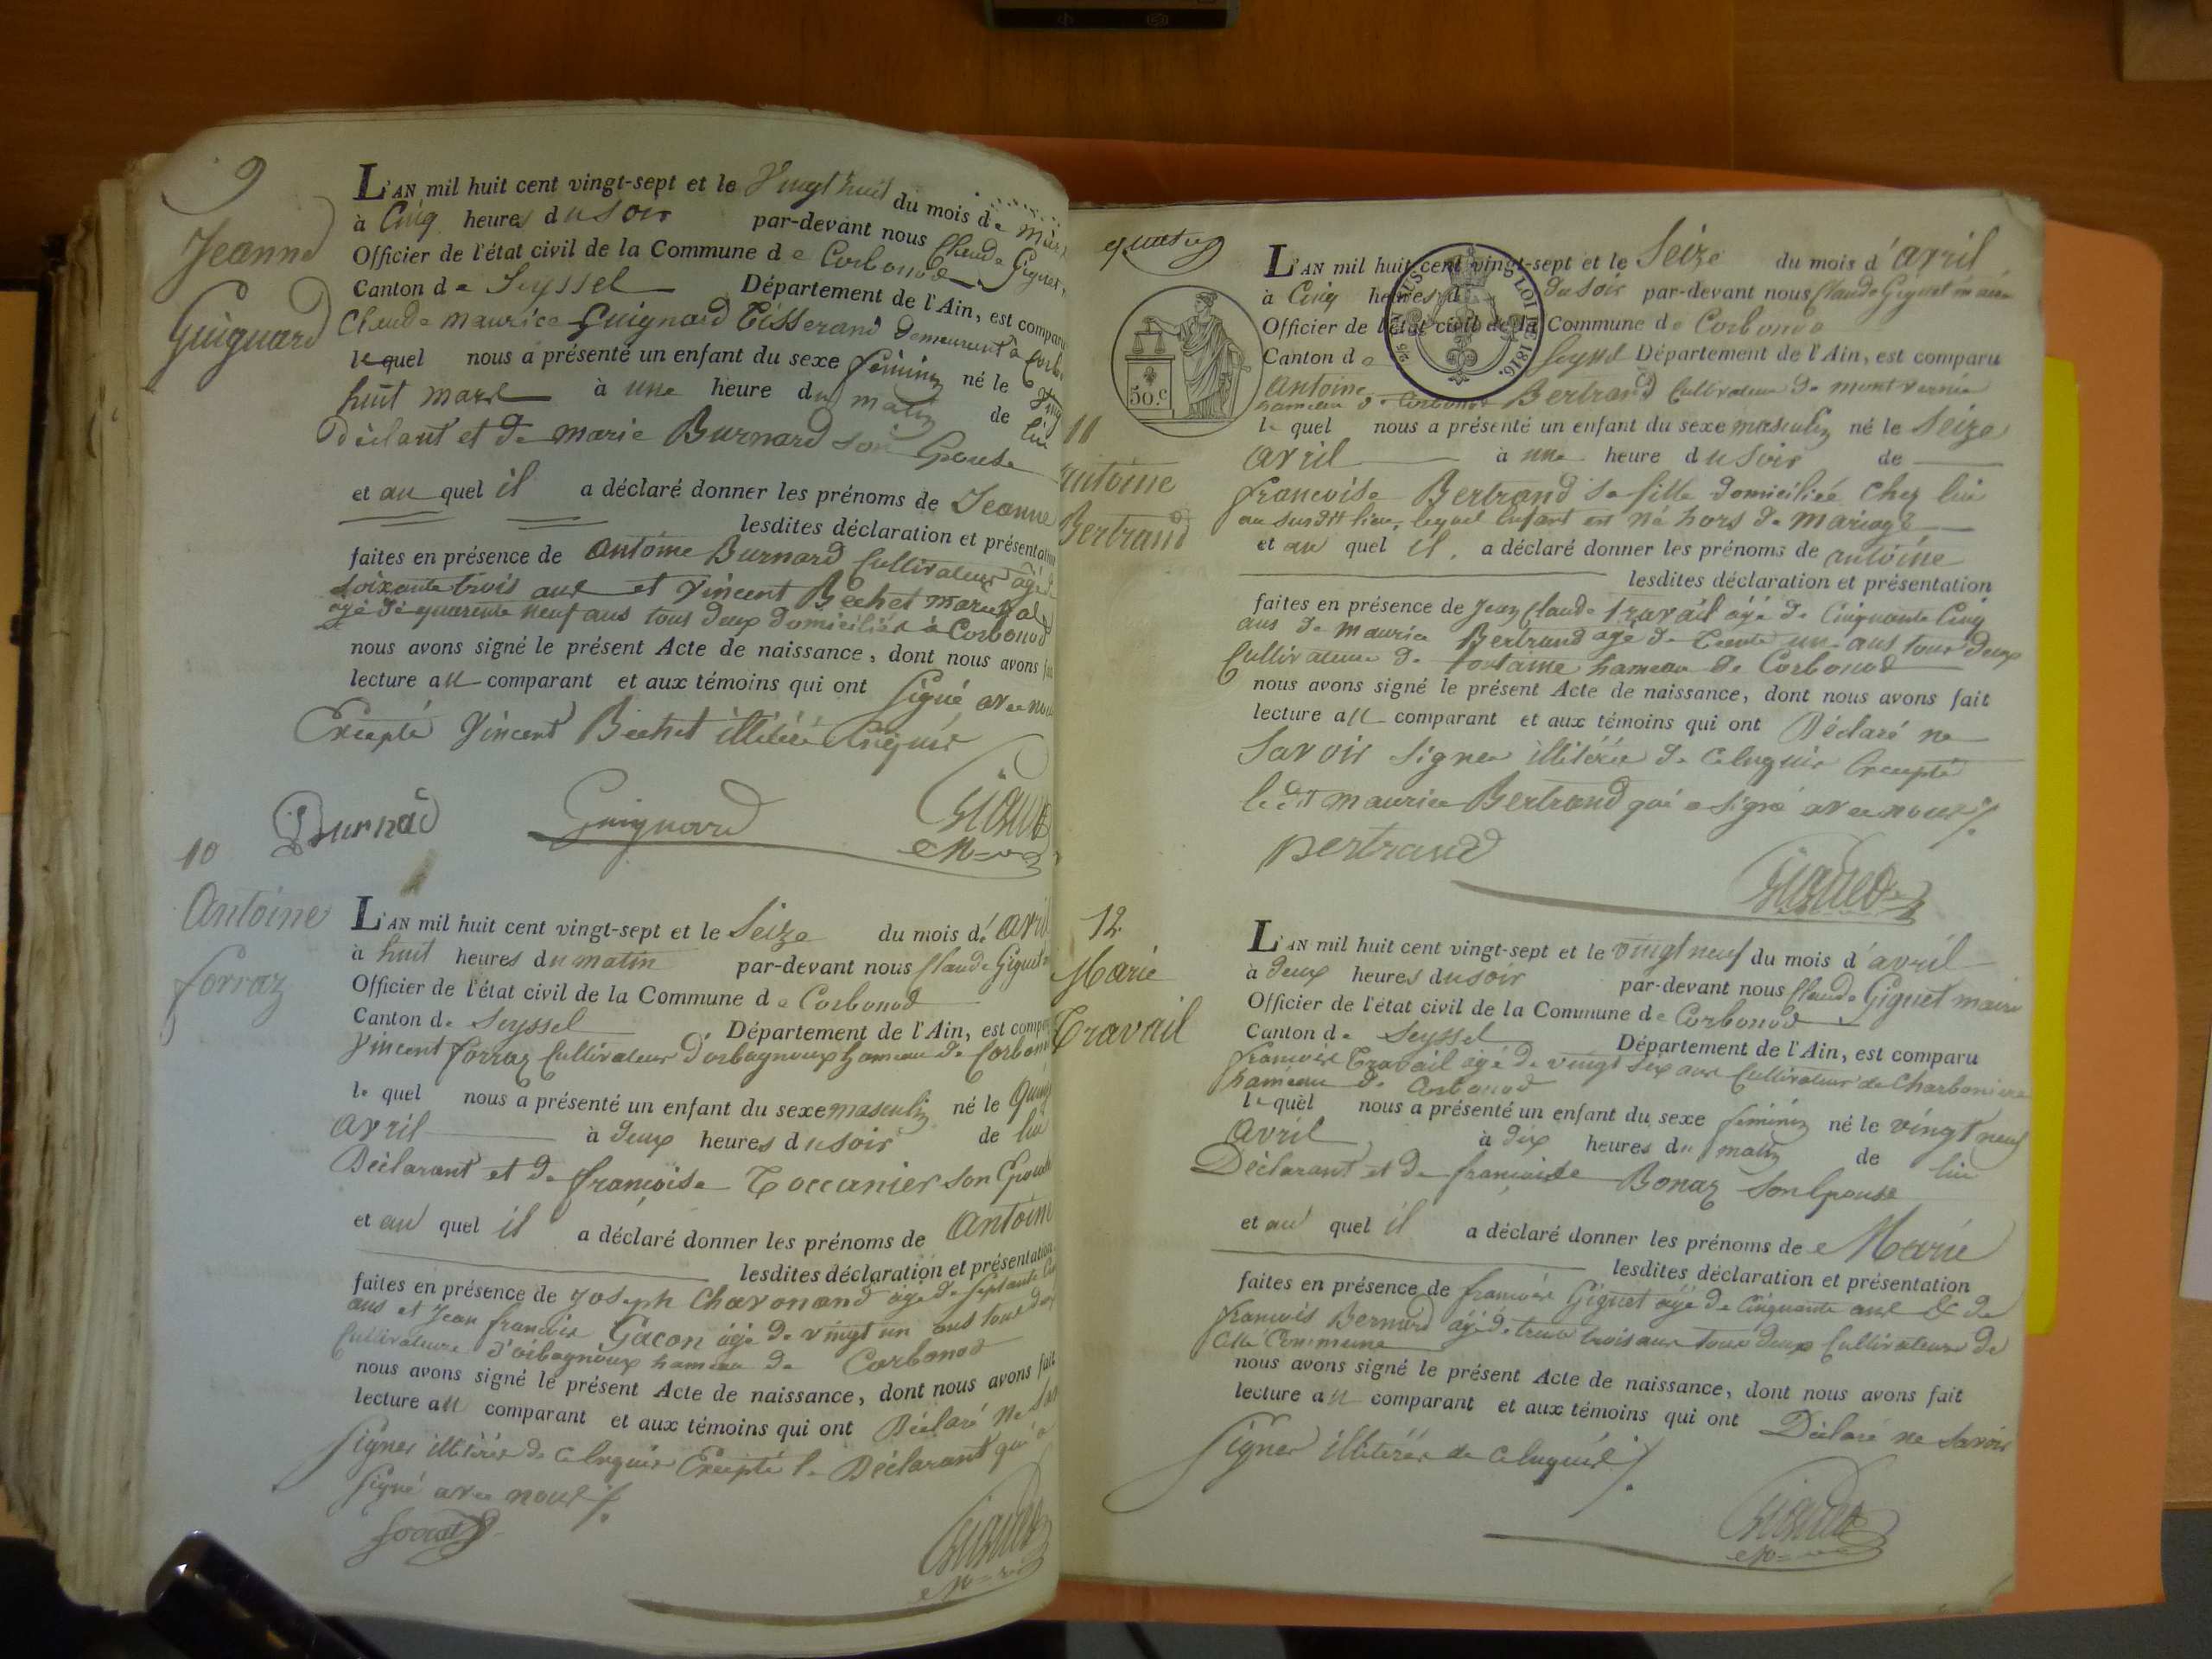 9
Jeanne
Guignard
L'AN mil huit cent vingt-sept et le Vingt huit du mois de mars
à Cinq heures du Soir par-devant nous Claude Giguet
Officier de l'état civil de la Commune de Corbonod
Canton de Seyssel Département de l'Ain, est comparu
Claude maurice Guignard Tisserand demeurant à Corbo
lequel nous a présenté un enfant du sexe féminin né le Vingt
huit mars à une heure du matin de lui
déclarant et de marie Burnard son Epouse
et au quel il a déclaré donner les prénoms de Jeanne
lesdites déclaration et présentation
faites en présence de antoine Burnard Cultivateur âgé de
soixante trois ans et Vincent Bechet marechal
agé de quarante neuf ans tous deux domiciliés à Corbonod
nous avons signé le présent Acte de naissance, dont nous avons fait
lecture au comparant et aux témoins qui ont Signé avec nous
Excepté Vincent Bechet illiteré enquis
Burnad Guignard
10
Antoine
forraz
L'AN mil huit cent vingt-sept et le Seize du mois d'avril
à huit heures du matin par-devant nous Claude Giguet
Officier de l'état civil de la Commune de Corbonod
Canton de Seyssel Département de l'Ain, est comparu
Vincent forraz Cultivateur d'orbagnoux hameau de Corbonod
le quel nous a présenté un enfant du sexe masculin né le quinze
avril à deux heures du soir de lui
Déclarant et de françoise Toccanier son Epouse
et au quel il a déclaré donner les prénoms de Antoine
lesdites déclaration et présentation
faites en présence de Joseph Chavonand âgé de septante
ans et Jean françois Gacon âgé de vingt un ans tous deux
Cultivateurs d'orbagnoux hameau de Corbonod
nous avons signé le présent Acte de naissance, dont nous avons fait
lecture au comparant et aux témoins qui ont Déclaré ne
Signer illitérés de ce enquis Excepté le Déclarant qui a
signé avec nous
forraz
quatre
25 LOI DE 1816.
50.c
11
antoine
Bertrand
L'AN mil huit cent vingt-sept et le Seize du mois d'avril
à Cinq heures du soir par-devant nous Claude Giguet maire
Officier de l'état civil de la Commune de Corbonod
Canton de Seyssel Département de l'Ain, est comparu
Antoine Bertrand Cultivateur de
hameau de Corbonod
le quel nous a présenté un enfant du sexe masculin né le Seize
avril à une heure du soir de
francoise Bertrand sa fille domiciliée chez lui
au susdit lieu, lequel Enfant est né hors de mariage
et au quel il a déclaré donner les prénoms de antoine
lesdites déclaration et présentation
faites en présence de Jean Claude Travail âgé de Cinquante Cinq
ans de maurice Bertrand agé de trente un ans tous deux
Cultivateurs de fontaine hameau de Corbonod
nous avons signé le présent Acte de naissance, dont nous avons fait
lecture au comparant et aux témoins qui ont Déclaré ne
Savoir Signer illitérés de ce enquis Excepté
ledit maurice Bertrand qui a signé avec nous
Bertrand
12
Marie
Travail
L'AN mil huit cent vingt-sept et le vingt neuf du mois d'avril
à deux heures du soir par-devant nous Claude Giguet maire
Officier de l'état civil de la Commune de Corbonod
Canton de Seyssel Département de l'Ain, est comparu
françois Travail âgé de vingt six ans Cultivateur de Charboniere
hameau de Corbonod
le quel nous a présenté un enfant du sexe féminin né le vingt neuf
avril à dix heures du matin de lui
Déclarant et de françoise Bonaz son Epouse
et au quel il a déclaré donner les prénoms de Marie
lesdites déclaration et présentation
faites en présence de françois Giguet âgé de Cinquante ans & de
françois Bernard âgé de trente trois ans tous deux Cultivateurs de
cette Commune
nous avons signé le présent Acte de naissance, dont nous avons fait
lecture au comparant et aux témoins qui ont Déclaré ne savoir
Signer illitérés de ce enquis